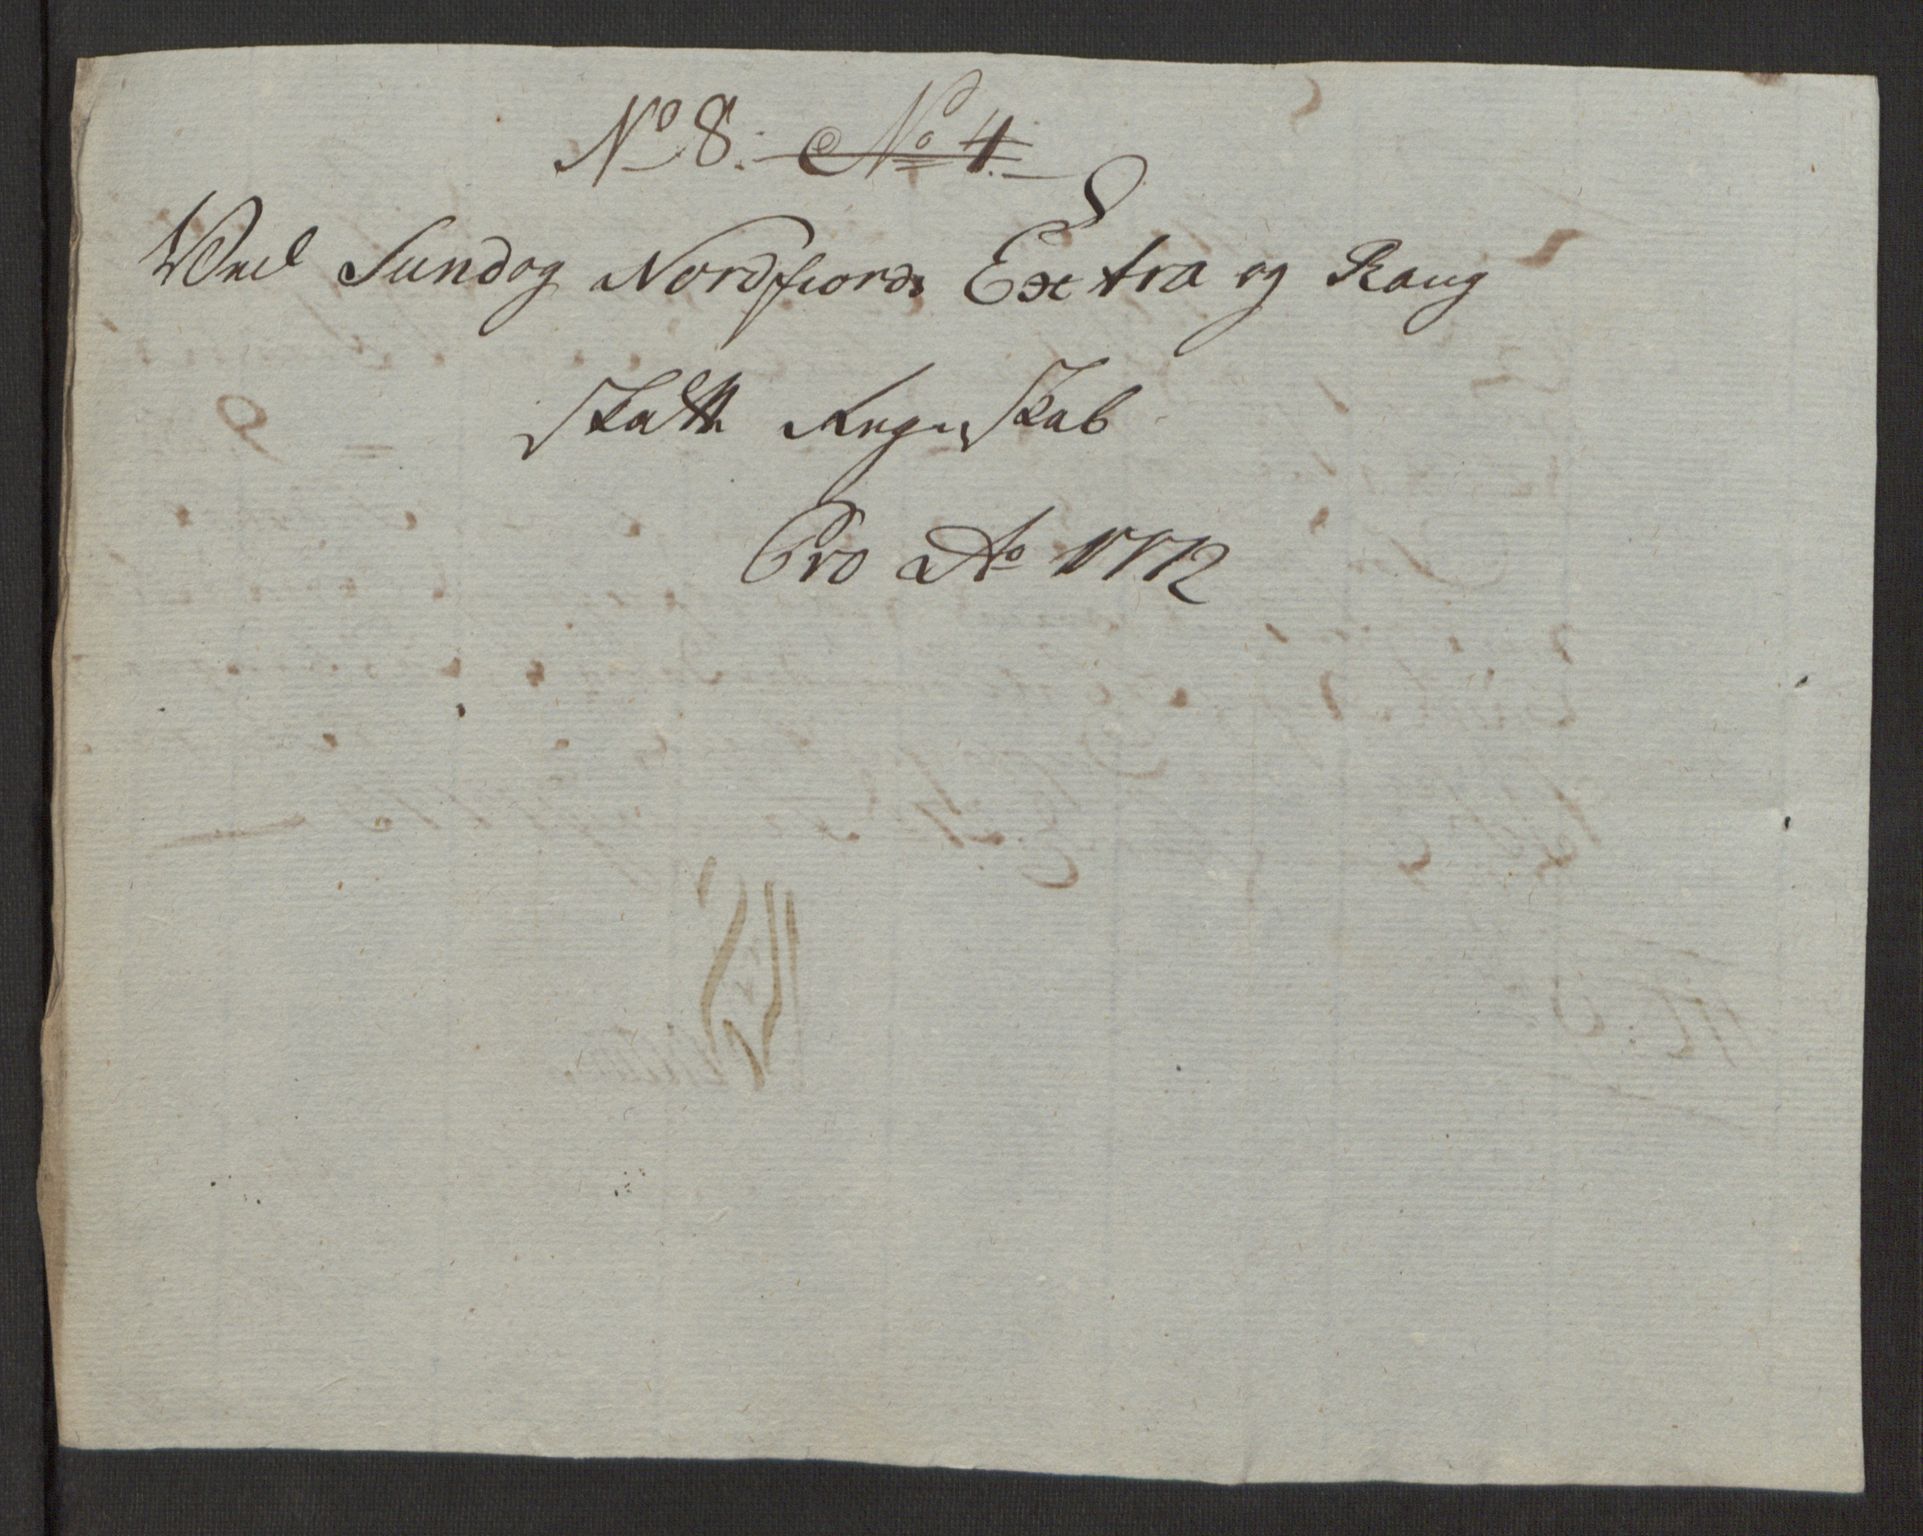 No 8. No 4.
Ved Sundog Nordfiords Extra og Rang
Skatte Regnskab
Pro Ao 1772